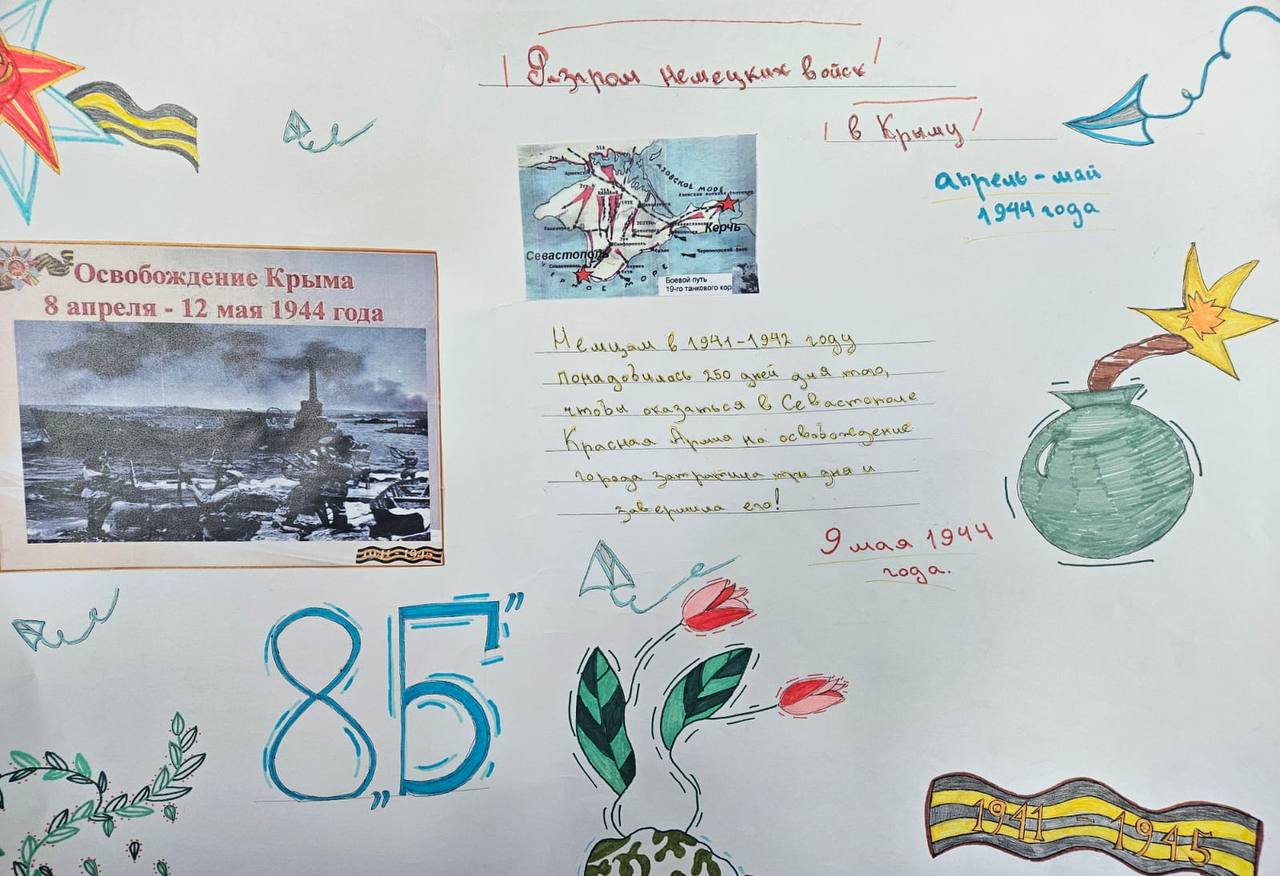 Разгром немецких войск
в Крыму
апрель - май
1944 года
Азовское море
Керчь
Севастополь
Боевой путь
19-го танкового кор
Освобождение Крыма
8 апреля - 12 мая 1944 года
1941-1945
Немцам в 1941-1942 году
понадобилось 250 дней для того,
чтобы оказаться в Севастополе
Красная Армия на освобождение
города затратила три дня и
завершила его!
9 мая 1944
года.
8„Б”
1941 - 1945